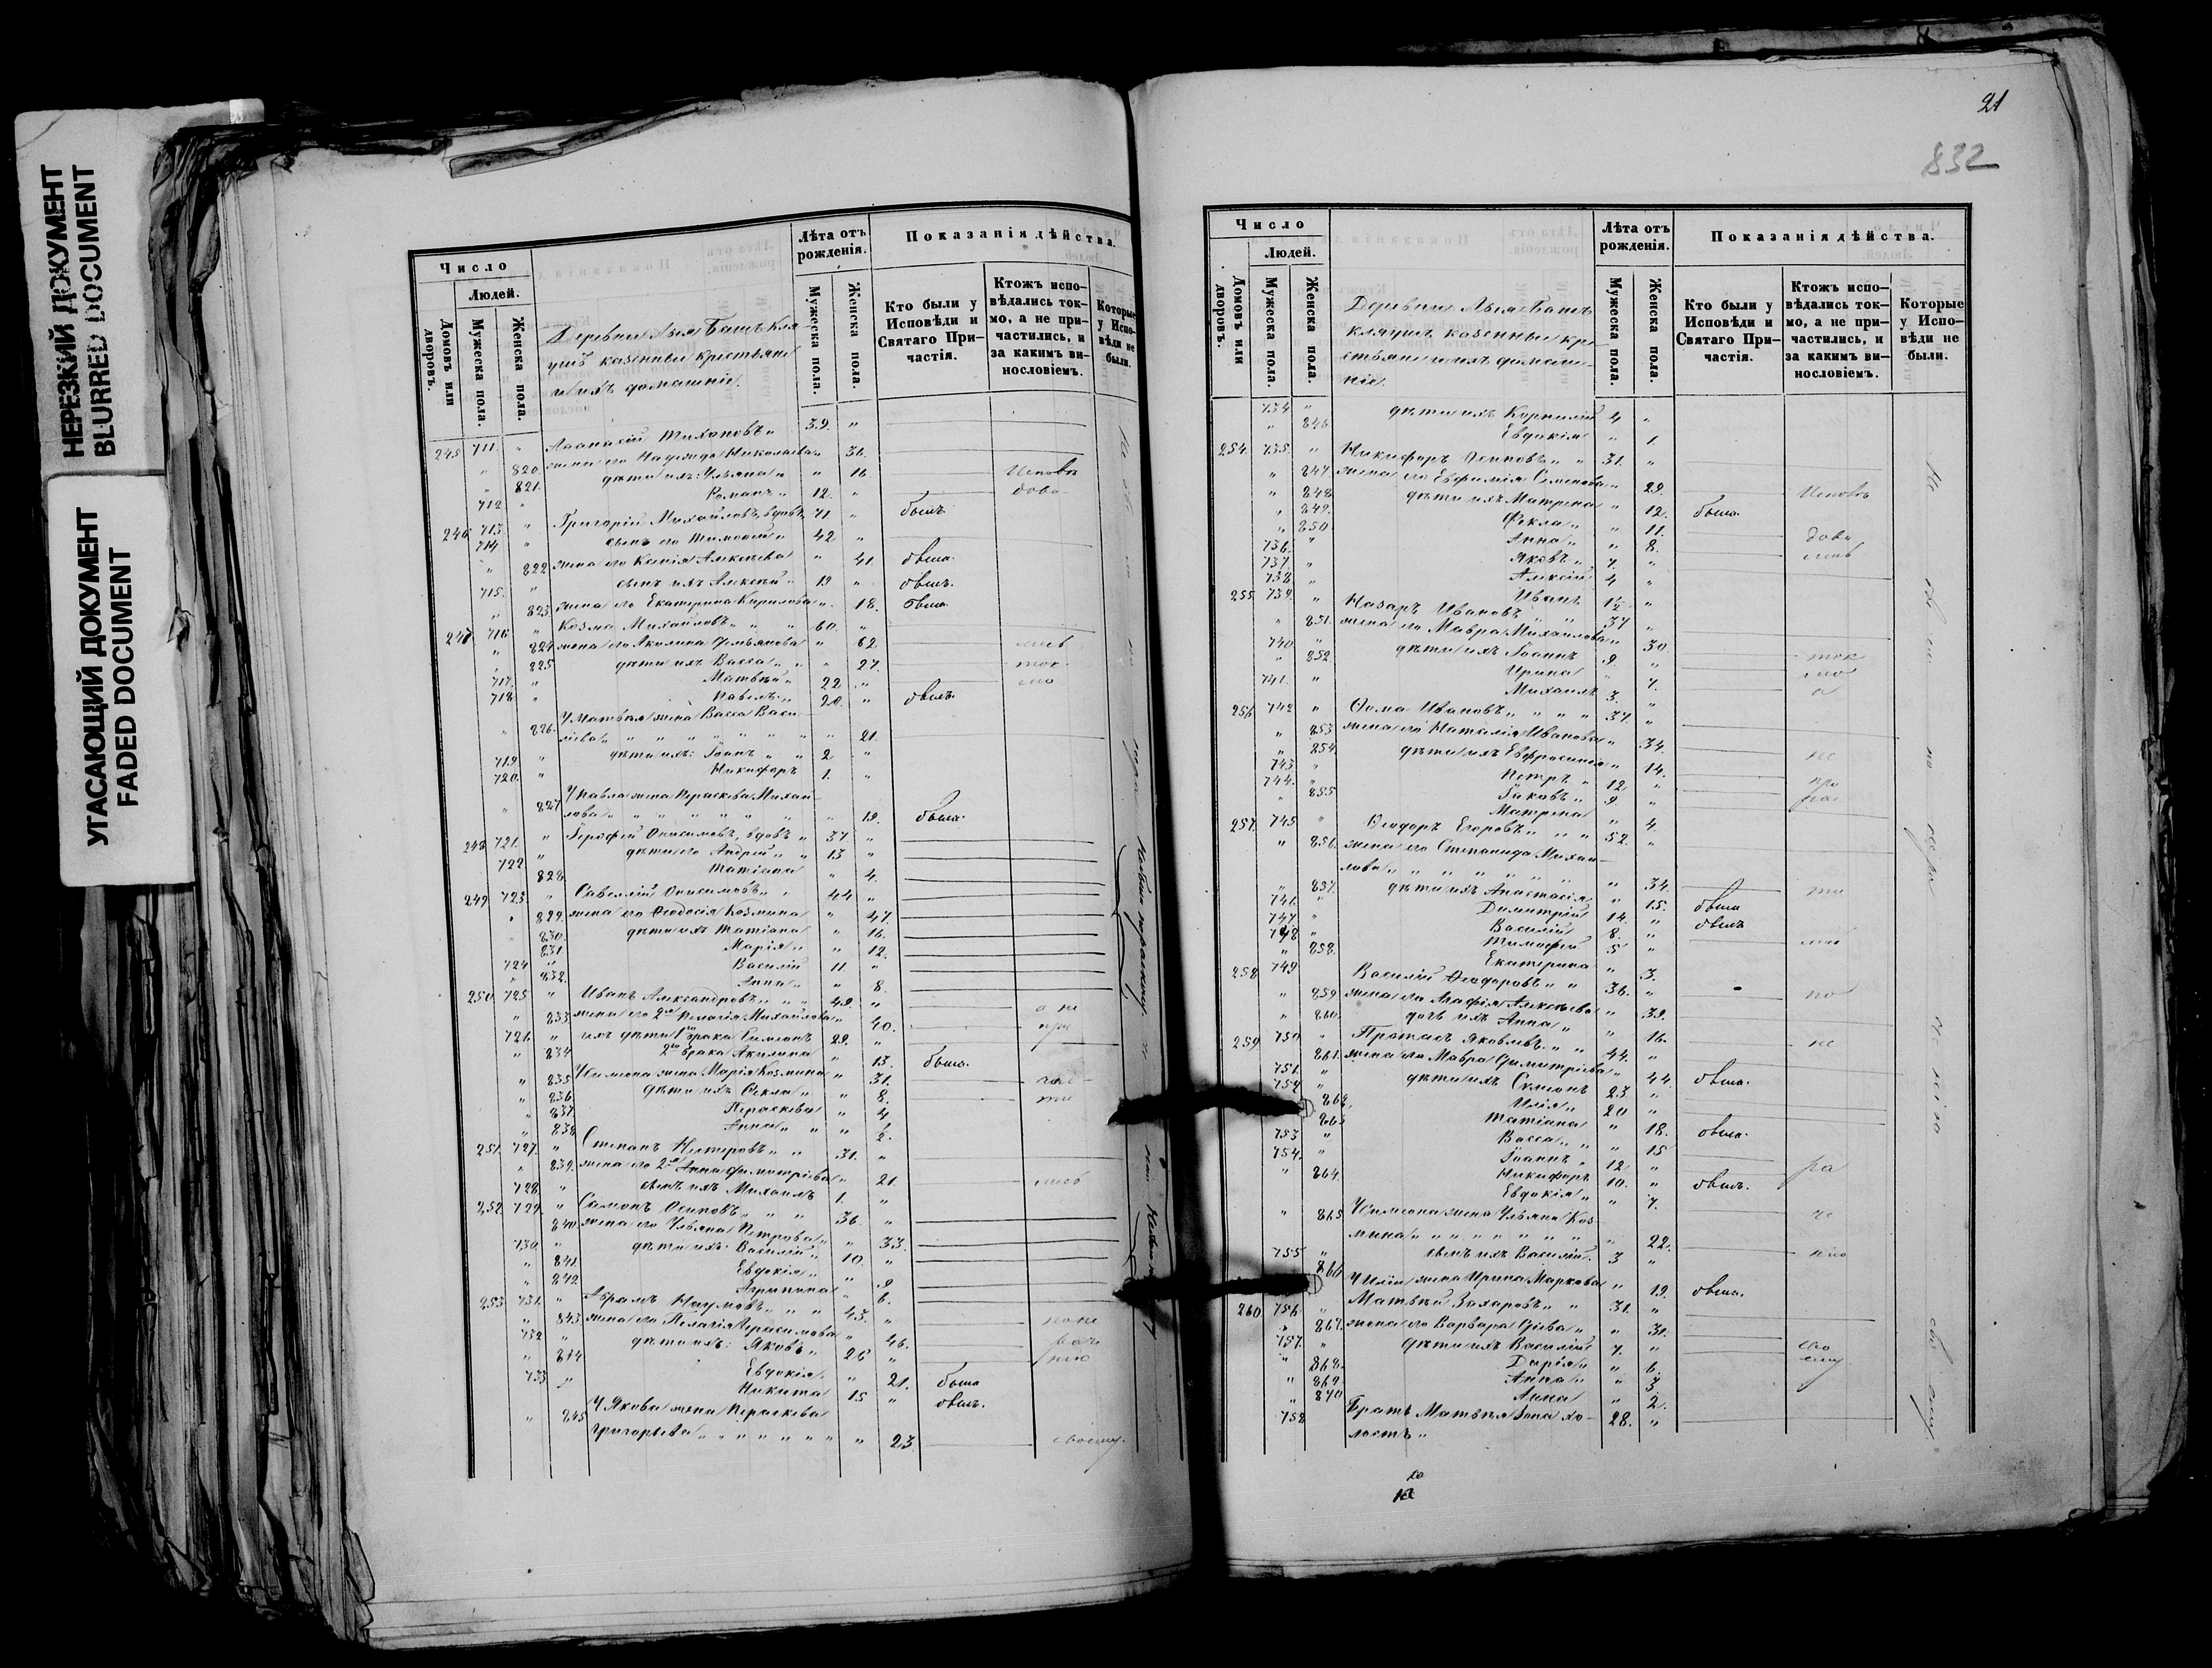 НЕРЕЗКИЙ ДОКУМЕНТ
BLURRED DOCUMENT
УГАСАЮЩИЙ ДОКУМЕНТ
FADED DOCUMENT
Число
Людей.
Домовъ или дворовъ.
Мужеска пола.
Женска пола.
Деревни Башъ Кля-
ушъ казенные крестьяне
и ихъ домашніе.
Лѣта отъ рожденія.
Мужеска пола.
Женска пола.
Показанія дѣйства.
Кто были у Исповѣди и Святаго При-частія.
Ктожъ испо-вѣдались ток-мо, а не при-частились, и за какимъ ви-нословіемъ.
Которые у Испо-вѣди не были.
245 711. " Аѳанасій Тихоновъ " 39. "
" 820. жена его Надежда Николаева " 36.
" 821. дѣти ихъ: Ульяна " " 16. Исповѣ
712 " Романъ " 12. " дова-
246 713 " Григорій Михайловъ, вдовъ, 71 " былъ
714 " сынъ его Тимоѳей " 42 "
" 822 жена его Ксенія Алексѣева " 41. была.
715. " сынъ ихъ Алексѣй " 19 " былъ.
" 823. жена его Екатерина Кирилова " 18. была
247 716 " Козма Михайловъ " " 60. "
" 824 жена его Акилина Емельянова " 62. лись
" 825 дѣти ихъ Васса " " 27. ток-
717. " Матвѣй " 22 " мо
718 " Павелъ " 20. " былъ.
" 826. У Матвѣя жена Васса Васи-
ліева " " 21.
719 " дѣти ихъ: Іоаннъ " 2 "
720. " Никифоръ 1. "
" 827 У Павла жена Параскева Михай-
лова " " 19. была.
248 721. " Ерофей Онисимовъ, вдовъ " 37 "
722 " дѣти его Андрей " 13 "
828. Татіана " 4.
249 723 " Савеллій Онисимовъ " 44 "
" 829 жена его Ѳеодосія Козмина " 47.
830. дѣти ихъ Татіана " 16.
831. Марія " " 12.
724 " Василій 11. "
" 832. Анна " " 8.
250. 725 " Иванъ Александровъ " " 49. " а не
" 833 жена его 2я Пелагія Михайлова " 40. при
726. " ихъ дѣти 1го брака Симеонъ 29. "
" 834 2го брака Акилина " 13. была.
" 835 У Симеона жена Марія Козмина " 31. час-
" 836 дѣти ихъ Ѳекла " " 8. ти
" 837 Параскева " 4
" 838 Анна " " ½.
251. 727. " Степанъ Нестеровъ " 31. "
" 839. жена его 2я Анна Димитріева " 21. лись
728. " сынъ ихъ Михаилъ 1. "
252 729. " Самонъ Осиповъ " " 36. "
840. жена его Ульяна Петрова " 33.
730. " дѣти ихъ: Василій " 10. "
" 841 Евдокія " " 9
" 842 Агрипина " 6.
253 731. " Абрамъ Наумовъ " " 45. "
" 843 жена его Пелагія Герасимова " 46.
732 " дѣти ихъ: Яковъ " 26 "
" 844 Евдокія " 21. была
733 " Никита 15 " былъ.
" 845 У Якова жена Параскева
Григорьева " " 23. своему.
21
832
Число
Людей.
Домовъ или дворовъ.
Мужеска пола.
Женска пола.
Деревни Башъ
кляушъ казенные кре-
стьяне и ихъ домаш-
ніе.
Лѣта отъ рожденія.
Мужеска пола.
Женска пола.
Показанія дѣйства.
Кто были у Исповѣди и Святаго При-частія.
Ктожъ испо-вѣдались ток-мо, а не при-частились, и за какимъ ви-нословіемъ.
Которые у Испо-вѣди не были.
734 " дѣти ихъ Корнилій 4 "
" 846 Евдокія " 1.
254. 735. " Никифоръ Осиповъ " 31. "
" 847 жена его Евфимія Семенова " 29. Исповѣ
" 848 дѣти ихъ Матрена " 12. была.
" 849. Ѳекла " " 11.
" 850. Анна " " 8. дова
736. " Яковъ " 7. " лись
737. " Алексій 4 "
738 " Иванъ 1½ "
255 739. " Назаръ Ивановъ " 37 "
" 851. жена его Мавра Михайлова " 30.
740 " дѣти ихъ Іоаннъ 9. " ток
" 852 Ирина " 7. мо
741. " Михаилъ 3. " а
256 742 " Ѳома Ивановъ " " 37. "
" 853 жена его Наталія Иванова " 34.
" 854 дѣти ихъ Евфросинія " 14. не
743 " Петръ " 12 " при
744. " Яковъ " 9. " час
" 855 Матрена " 4.
257. 745 " Ѳеодоръ Егоровъ " " 52. "
" 856. жена его Степанида Михай-
лова " " 34. ти
" 857. дѣти ихъ Анастасія " 15. была
746. " Димитрій 14. " былъ
747. " Василій 8. "
748 " Тимоѳей 5 "
" 858. Екатерина " 3.
258 749 Василій Ѳеодоровъ " 36. "
" 859 жена его Агафія Алексѣева " 39. по
" 860 дочь ихъ Анна " " 16.
259 750 " Протасъ Яковлевъ " " 44. "
861. жена его Мавра Димитріева " 44. была.
751. " дѣти ихъ Семіонъ 23 "
752 " Илія " 20 "
862. Татіана " 18. была.
863 Васса " " 15
753 " Іоаннъ " 12 "
754. " Никифоръ 10. " былъ.
" 864. Евдокія " " 7.
" 865 У Симеона жена Ульяна Коз-
мина " " 22.
755 " сынъ ихъ Василій. 3 "
866 У Иліи жена Ирина Маркова " 19. была.
260 756 " Матвѣй Захаровъ " " 31. "
" 867. жена его Варвара " 31.
757. " дѣти ихъ Василій 7. "
" 868. Дарія " " 6.
" 869. Анна " " 3
" 870 Анна " 2.
758 Братъ Матвѣя хо-
лостъ " 28. "